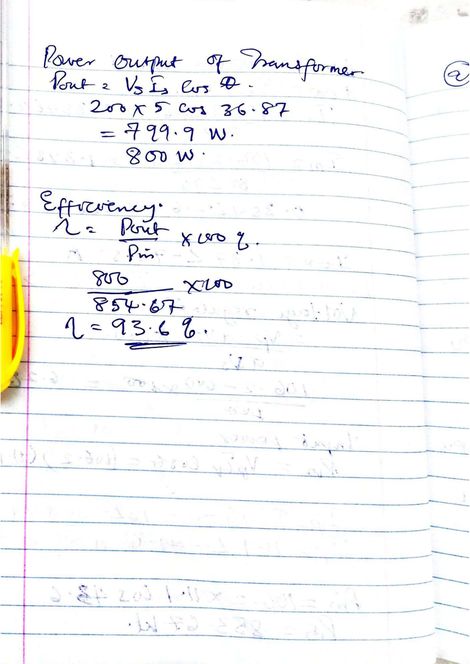 Power output of Transformer
Pout = Vs Is Cos Φ.
200 x 5 cos 36.87
= 799.9 W.
800 W.
Efficiency.
η = Pout / Pin x 100 %.
800 / 854.67 x 100
η = 93.6 %.